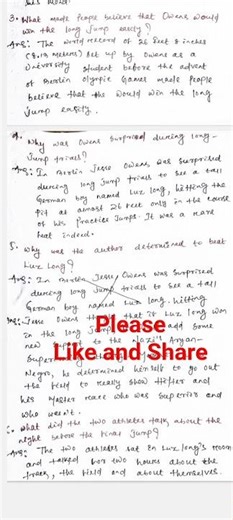 3. What made people believe that Owens would
win the long jump easily?
Ans: The world record of 26 feet 8 inches
(8.13 meters) set up by Owens as a
University student before the advent
of Berlin Olympic Games made people
believe that he would win the long
jump easily.
4. Why was Owens surprised during long-
jump trials?
Ans: In Berlin Jesse Owens was surprised
during long jump trials to see a tall
German boy named Luz long, hitting the
pit at almost 26 feet only in the course
of his practise jumps. It was a rare
feat indeed.
5. Why was the author determined to beat
Luz Long?
Ans: In Berlin Jesse Owens was surprised
during long jump trials to see a tall
German boy named Luz long, hitting
Ans: Jesse Owens that if Luz long won
in the long add some
new to the Nazi's Aryan-
Negro, he determined himself to go out
the field to really show Hitler and
his master race who was superior and
who wasn't.
6. What did the two athletes talk about the
night before the final jump?
Ans: The two athletes sat in Luz long's room
and talked for two hours about the
track, the field and about themselves.
Please
Like and Share